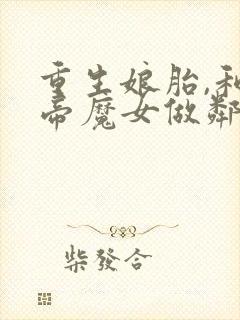 重生娘胎,和
帝魔女做鄰
柴發合